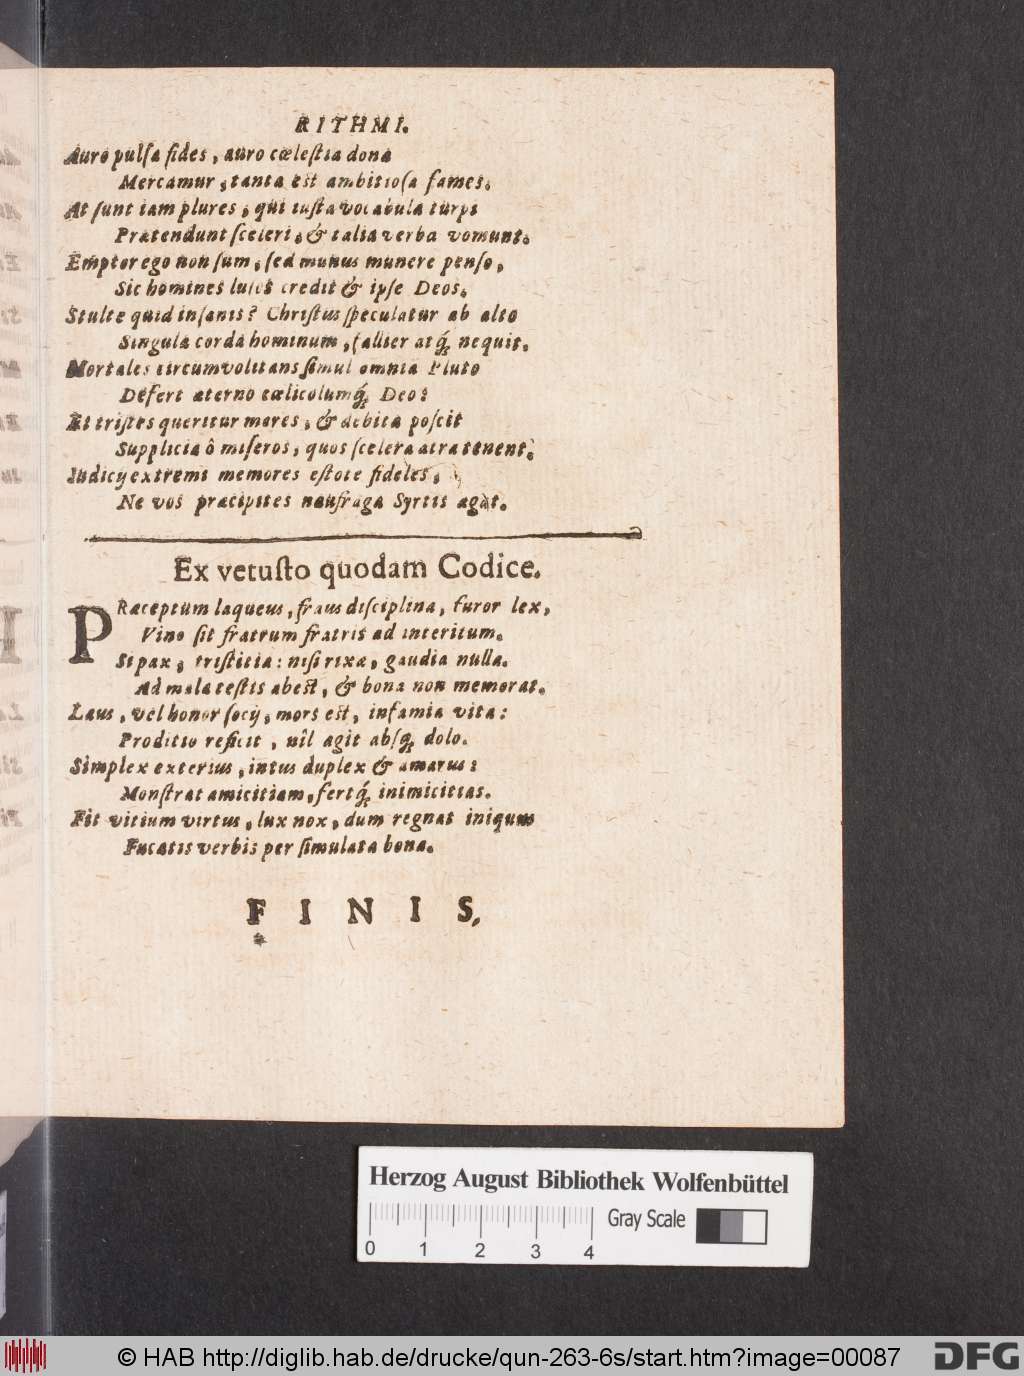 RITHMI.
Auro pulſa fides, auro cœleſtia dona
Mercamur, tanta est ambitioſa fames.
At ſunt iam plures, qui iuſta vocabula turpi
Prætendunt ſceleri, & talia verba vomunt.
Emptor ego non ſum, ſed munus munere penſo,
Sic homines luſit credit & ipſe Deos.
Stulte quid inſanis? Chriſtus ſpeculatur ab alto
Singula corda hominum, fallier atq́; nequit.
Mortales circumvolitans ſimul omnia Pluto
Defert æterno cœlicolumq́; Deo:
Et triſtes queritur mores, & debita poſcit
Supplicia ô miſeros, quos ſcelera atra tenent.
Iudicij extremi memores eſtote fideles,
Ne vos præcipites naufraga Syrtis agat.
Ex vetuſto quodam Codice.
PRæceptum laqueus, fraus diſciplina, furor lex,
Vino ſit fratrum fratris ad interitum.
Si pax, triſtitia: niſi rixa, gaudia nulla.
Ad mala teſtis abest, & bona non memorat.
Laus, vel honor ſocij, mors est, infamia vita:
Proditio reficit, nîl agit abſq; dolo.
Simplex exterius, intus duplex & amarus:
Monſtrat amicitiam, fertq́; inimicitias.
Fit vitium virtus, lux nox, dum regnat iniquus
Fucatis verbis per ſimulata bona.
FINIS.
Herzog August Bibliothek Wolfenbüttel
Gray Scale
0 1 2 3 4
© HAB http://diglib.hab.de/drucke/qun-263-6s/start.htm?image=00087
DFG